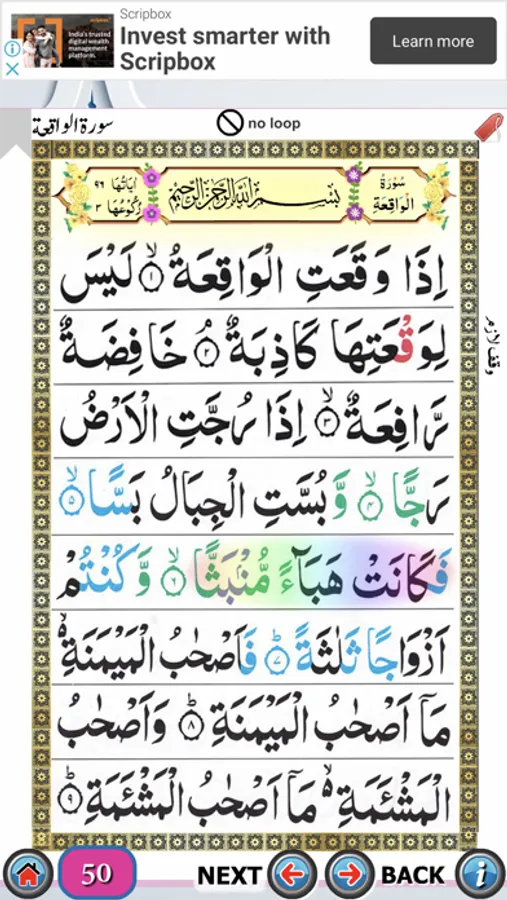 Scripbox
Invest smarter with
Scripbox
India's trusted
digital wealth
management
platform.
Learn more
سورة الواقعة
no loop
اٰیَاتُهَا ٩٦
رُكُوْعُهَا ٣
بِسْمِ اللّٰهِ الرَّحْمٰنِ الرَّحِيْمِ
سُوْرَةُ
الْوَاقِعَةِ
اِذَا وَقَعَتِ الْوَاقِعَةُ ۙ‏﴿۱﴾ لَيْسَ
لِوَقْعَتِهَا كَاذِبَةٌ ۘ‏﴿۲﴾ خَافِضَةٌ
وقف لازم
رَّافِعَةٌ ۙ‏﴿۳﴾ اِذَا رُجَّتِ الْاَرْضُ
رَجًّا ۙ‏﴿۴﴾ وَّ بُسَّتِ الْجِبَالُ بَسًّا ۙ‏﴿۵﴾
فَكَانَتْ هَبَآءً مُّنْۢبَثًّا ۙ‏﴿۶﴾ وَّ كُنْتُمْ
اَزْوَاجًا ثَلٰثَةً ؕ‏﴿۷﴾ فَاَصْحٰبُ الْمَيْمَنَةِ ۙ
مَاۤ اَصْحٰبُ الْمَيْمَنَةِ ؕ‏﴿۸﴾ وَاَصْحٰبُ
الْمَشْئَمَةِ ۙ مَاۤ اَصْحٰبُ الْمَشْئَمَةِ ؕ‏﴿۹﴾
50
NEXT
BACK